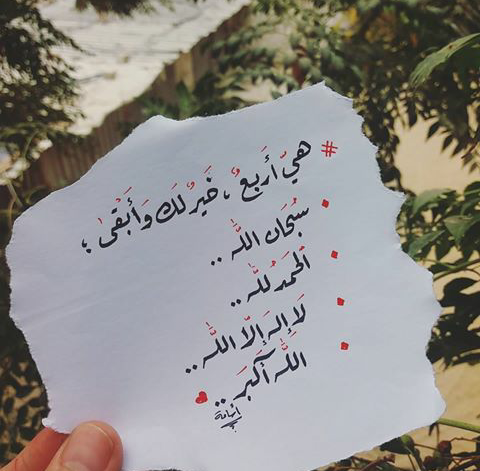 # هيَ أَربعٌ ، خَيرٌ لَكَ وَأَبقَىٰ ؛
سُبْحَان اللَّه ..
اَلحَمدُ للَّه ..
لَا إلهَ إلَّا اللَّه ..
اَللَّه أَكبَر ..